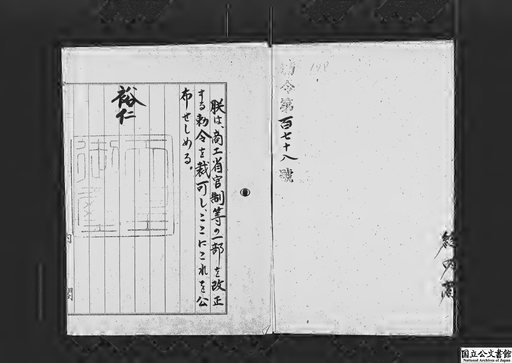 勅令第百七十八號
朕は、商工省官制等の一部を改正
する勅令を裁可し、ここにこれを公
布せしめる。
裕仁
国立公文書館
National Archives of Japan